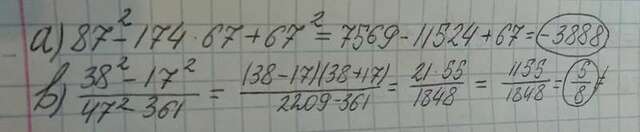 а) 87² - 174 · 67 + 67² = 7569 - 11524 + 67 = -3888
b) 38² - 17² / 47² - 361 = (38 - 17)(38 + 17) / 2209 - 361 = 21 · 55 / 1848 = 1155 / 1848 = 5 / 8